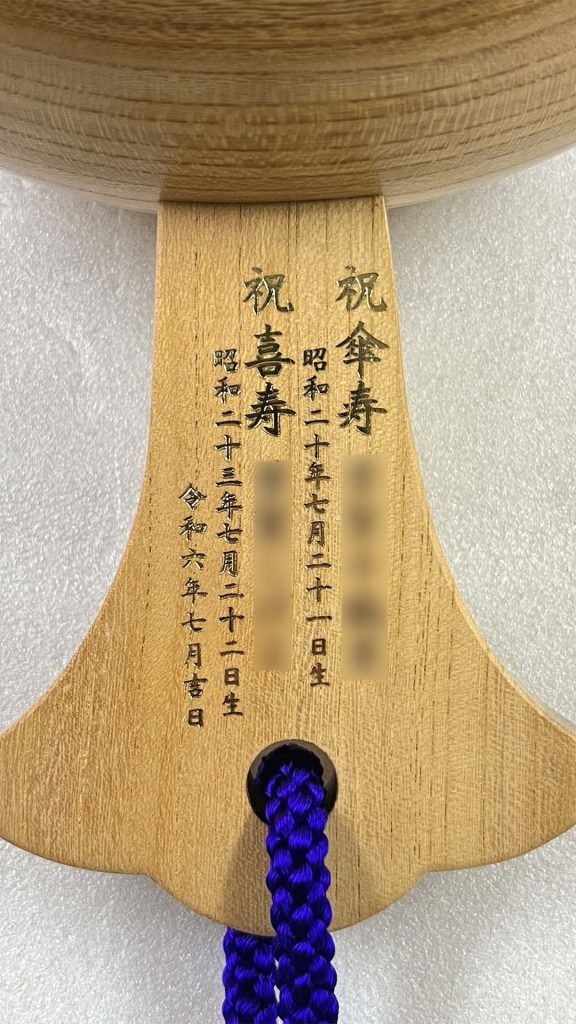 祝傘寿
昭和二十年七月二十一日生
祝喜寿
昭和二十三年七月二十二日生
令和六年七月吉日